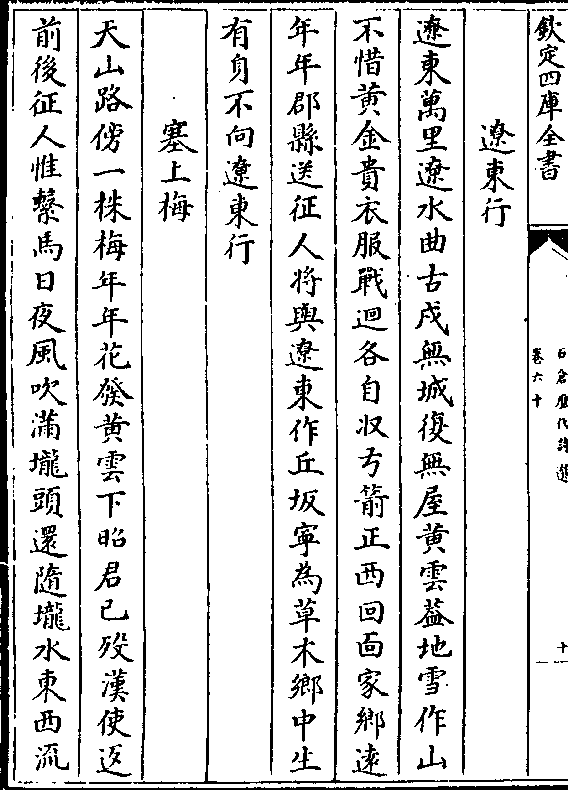 欽定四庫全書
石倉歷代詩選
卷六十
十
遼東行
遼東萬里遼水曲古戍無城復無屋黄雲葢地雪作山
不惜黄金貴衣服戰迴各自収弓箭正西回靣家鄉逺
年年郡縣送征人將與遼東作丘坂寧為草木鄉中生
有身不向遼東行
塞上梅
天山路傍一株梅年年花發黄雲下昭君已殁漢使返
前後征人惟繫馬日夜風吹滿壠頭還隨壠水東西流